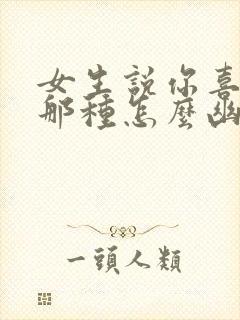 女生說你喜
那種怎麼幽
一頭人類